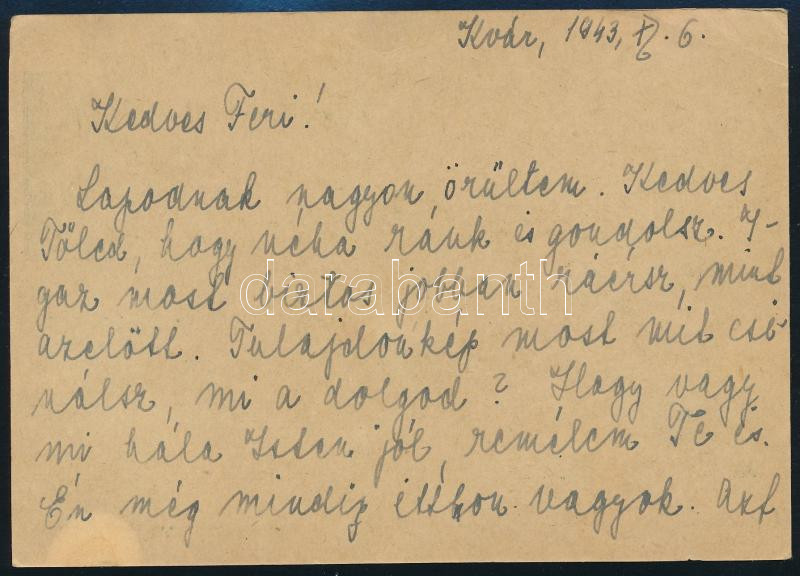 Kvár, 1943, 6.
Kedves Feri!
Lapodnak nagyon örültem. Kedves
Tőled, hogy néha ránk is gondolsz. I-
gaz most biztos jobban ráérsz, mint
azelőtt. Tulajdonkép most mit csi-
nálsz, mi a dolgod? Hogy vagy
mi hála Isten jól, remélem Te is.
Én még mindig itthon vagyok. Azt
darabanth